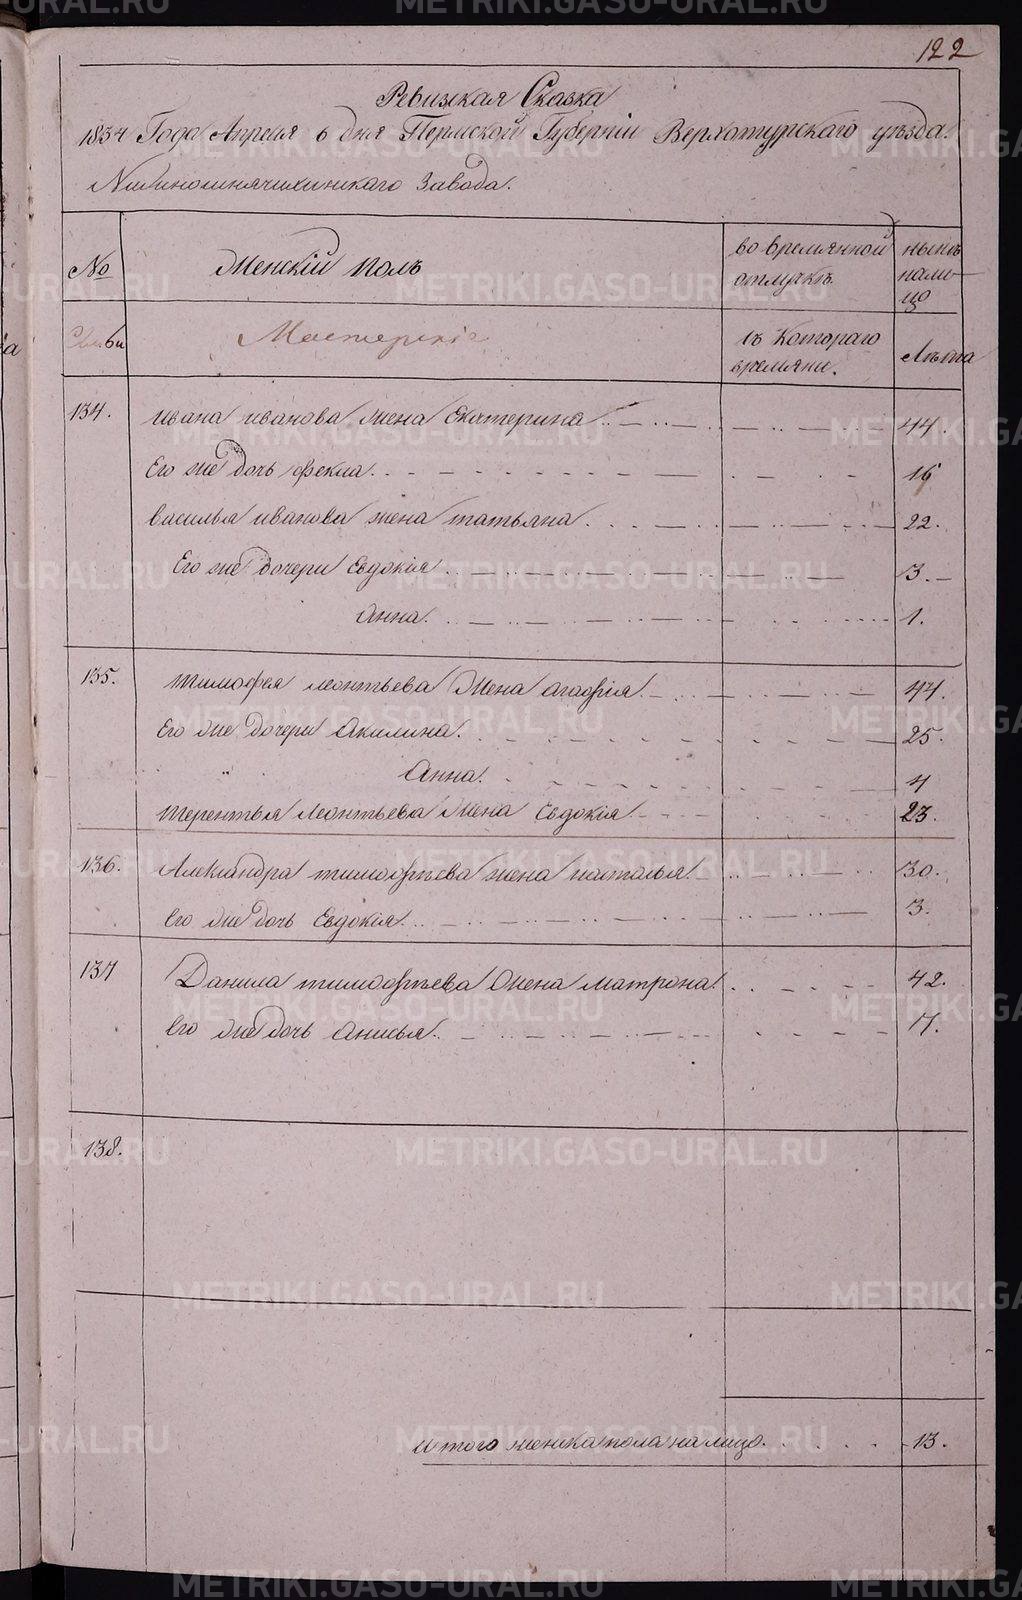 122
Ревизкая Сказка
1834 Года Апреля 6 дня Пермской Губерніи Верхотурскаго уезда.
Завода.
№ Женскій полъ во времянной отлучкѣ. нынѣ нали-цо
Мастерскіе съ Котораго времяни. Лѣта
134. ивана иванова жена Екатерина 44.
Его же дочь фекла. 16
василья иванова жена татьяна. 22.
Его же дочери Евдокія 3.
Анна. 1.
135. тимофея леонтьева жена агафія. 44.
Его же дочери Акилина. 25.
" Анна. 4
терентья леонтьева жена Евдокія 23.
136. Александра тимофѣева жена наталья. 30.
Его же дочь Евдокія. 3.
137 Данила тимофѣева жена матрона. 42.
Его же дочь Анисья. 17.
138.
итого женска пола налицо. 13.
METRIKI.GASO-URAL.RU